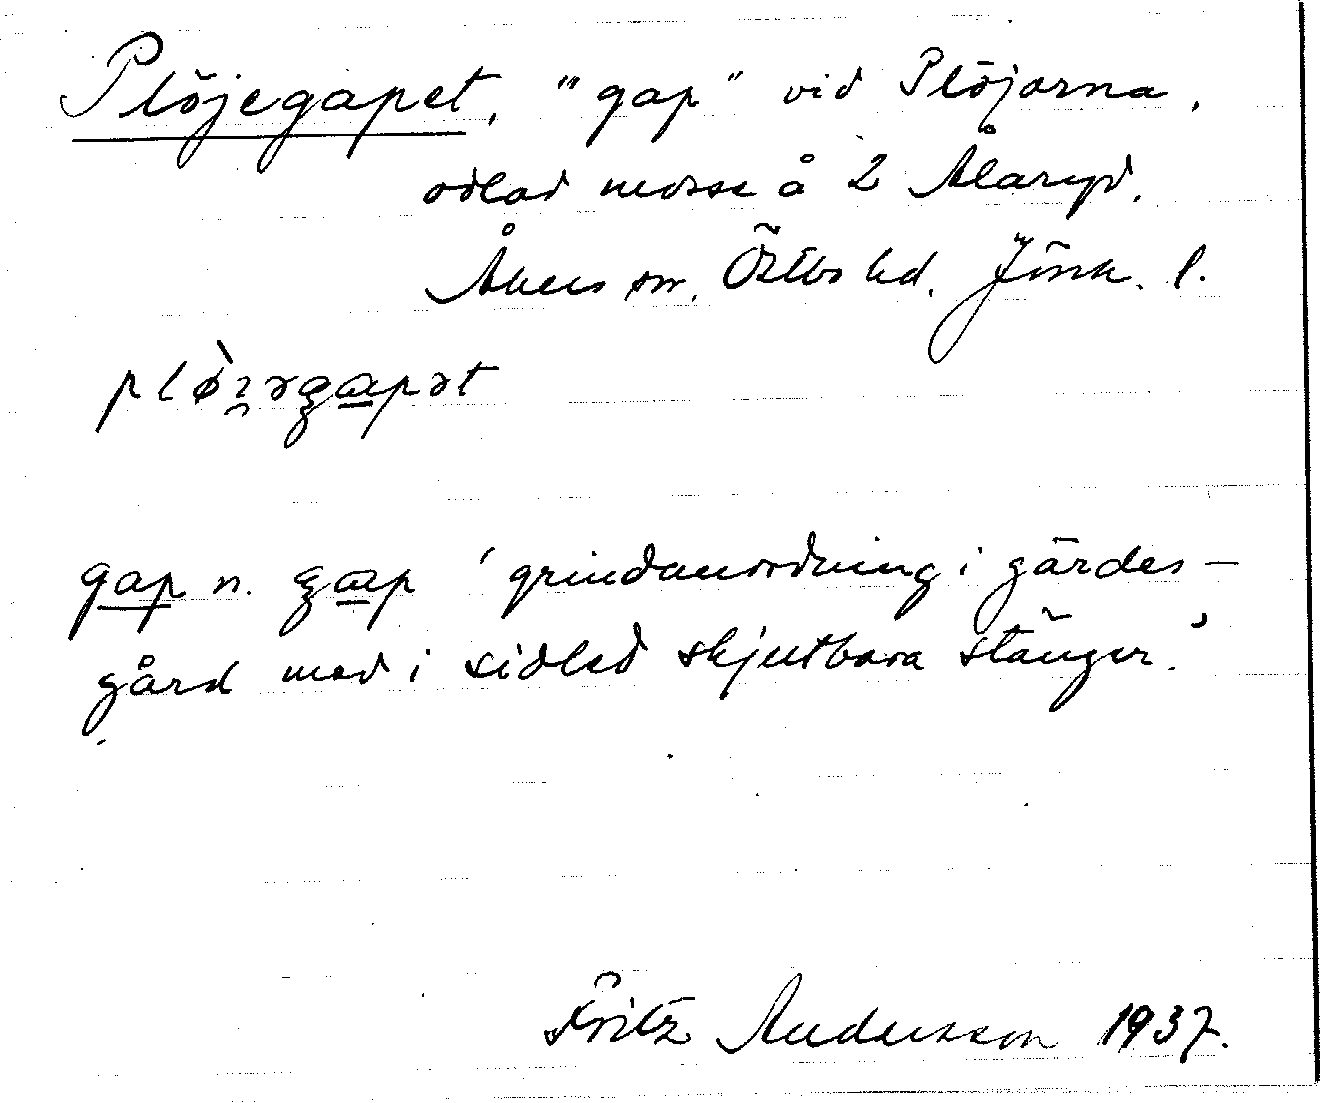 Plöjegapet, "gap" vid Plöjorna,
odlad mosse å 2 Ålaryd.
Åkers sn. Östbo hd. Jönk. l.
gap n. gap 'grindanordning i gärdes-
gård med i sidled skjutbara stänger.'
Fritz Andersson 1937.